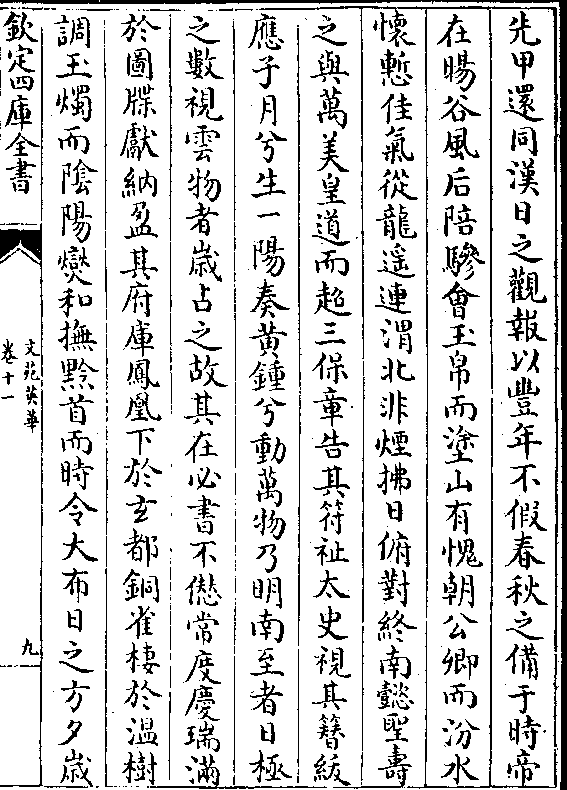 先甲還同漢日之觀報以豐年不假春秋之備于時帝
在暘谷風后陪驂會玉帛而塗山有愧朝公卿而汾水
懷慙佳氣從龍遥連渭北非煙拂日俯對終南懿聖壽
之與萬美皇道而超三保章告其符祉太史視其簪紱
應子月兮生一陽奏黄鍾兮動萬物乃明南至者日極
之數視雲物者歲占之故其在必書不僁常度慶瑞滿
於圖牒獻納盈其府庫鳳凰下於玄都銅雀棲於溫樹
調玉燭而陰陽爕和撫黔首而時令大布日之方夕歲
欽定四庫全書
文苑英華
卷十一
九